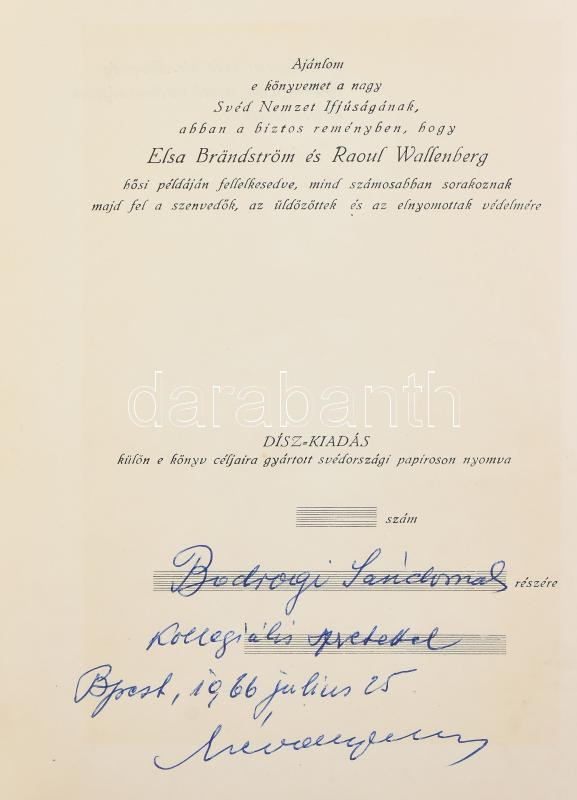 Ajánlom
e könyvemet a nagy
Svéd Nemzet Ifjúságának,
abban a biztos reményben, hogy
Elsa Brändström és Raoul Wallenberg
hősi példáján fellelkesedve, mind számosabban sorakoznak
majd fel a szenvedők, az üldözöttek és az elnyomottak védelmére
darabanth
DÍSZ=KIADÁS
külön e könyv céljaira gyártott svédországi papiroson nyomva
szám
Bodrogi Sándornak részére
Kollegiális szeretettel
Bpest, 1966 július 25